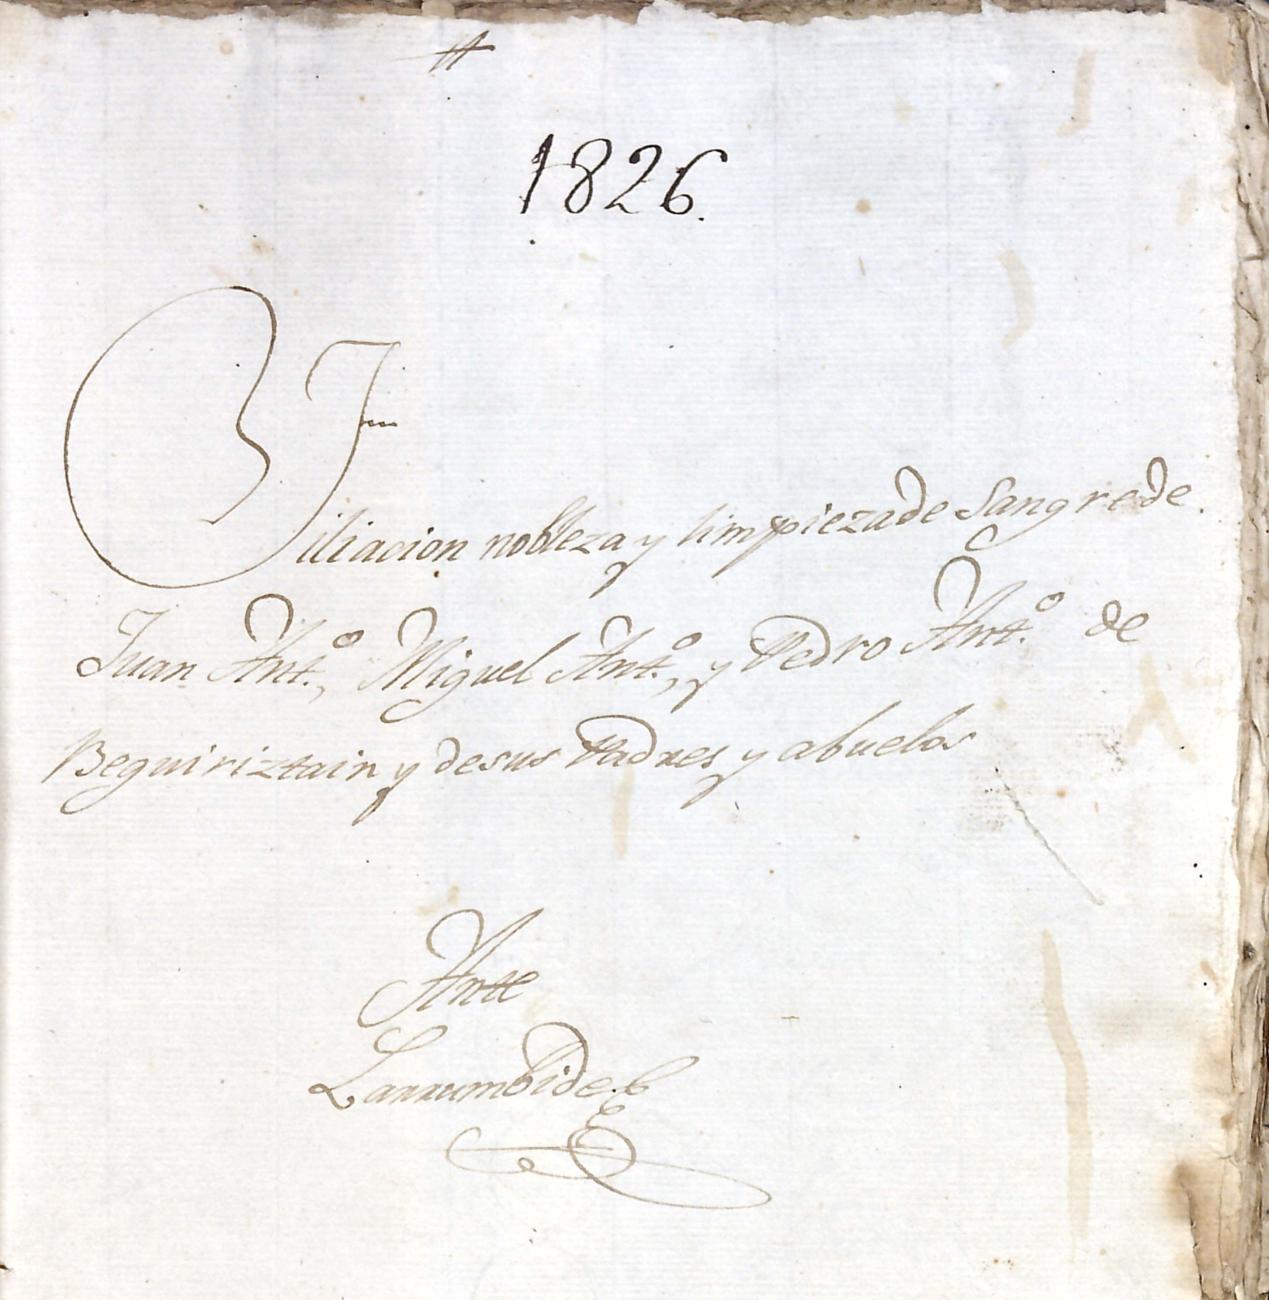 1826.
Filiacion nobleza y limpieza de Sangre de
Juan Ant.º, Miguel Ant.º, y Pedro Ant.º de
Beguiriztain y de sus Padres y abuelos
Ante
Larrumbide